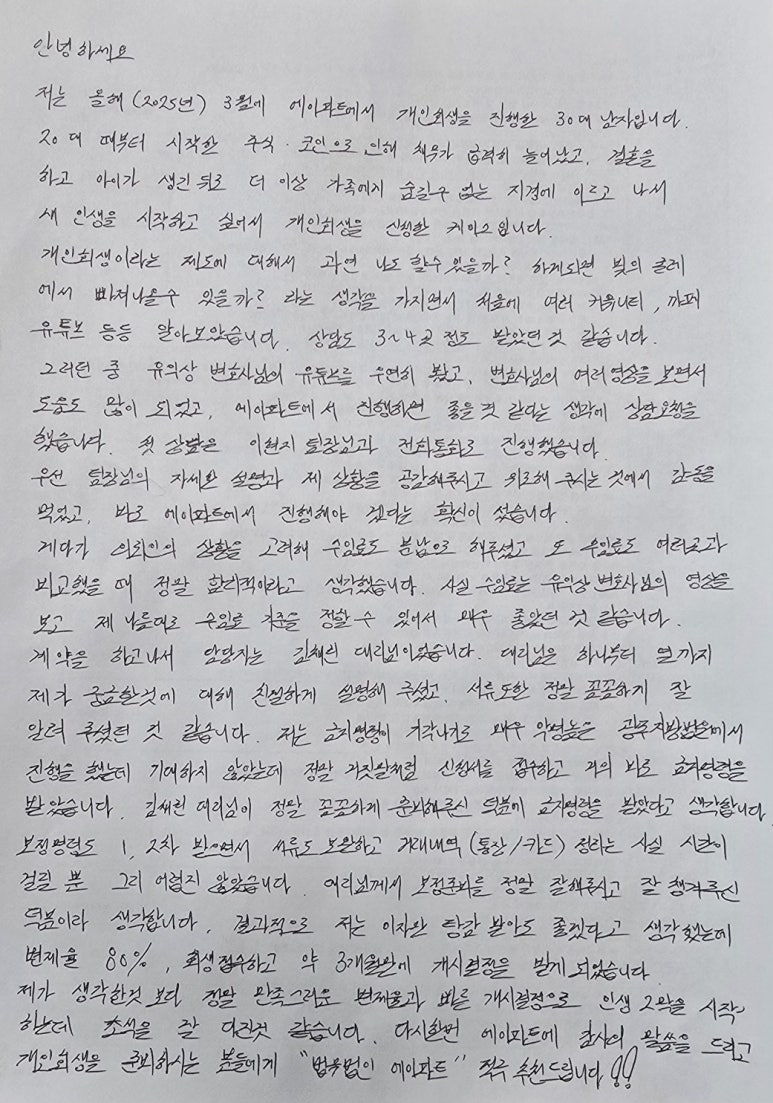 안녕하세요
저는 올해(2025년) 3월에 에이파트에서 개인회생을 진행한 30대 남자입니다.
20대 때부터 시작한 주식·코인으로 인해 채무가 급격히 늘어났고, 결혼을
하고 아이가 생긴 뒤로 더 이상 가족에게 숨길수 없는 지경에 이르고 나서
새 인생을 시작하고 싶어서 개인회생을 신청한 케이스입니다.
개인회생이라는 제도에 대해서 과연 나도 할수있을까? 하게되면 빚의 굴레
에서 빠져나올수 있을까? 라는 생각을 가지면서 처음에 여러 커뮤니티, 까페
유튜브 등등 알아보았습니다. 상담도 3~4곳 정도 받았던 것 같습니다.
그러던 중 유의상 변호사님의 유튜브를 우연히 봤고, 변호사님의 여러영상을 보면서
도움도 많이 되었고, 에이파트에서 진행하면 좋을것 같다는 생각에 상담요청을
했습니다. 첫 상담은 이현지 팀장님과 전화통화로 진행했습니다.
우선 팀장님의 자세한 설명과 제 상황을 공감해주시고 위로해 주시는 것에서 감동을
먹었고, 바로 에이파트에서 진행해야 겠다는 확신이 섰습니다.
게다가 의뢰인의 상황을 고려해 수임료도 분납으로 해주셨고 또 수임료도 여러곳과
비교했을 때 정말 합리적이라고 생각했습니다. 사실 수임료는 유의상변호사님의 영상을
보고 제 나름대로 수임료 기준을 정할 수 있어서 매우 좋았던 것 같습니다.
계약을 하고나서 담당자는 김채린 대리님이었습니다. 대리님은 하나부터 열까지
제가 궁금한것에 대해 친절하게 설명해 주셨고, 서류또한 정말 꼼꼼하게 잘
알려 주셨던 것 같습니다. 저는 금지명령이 기각나기로 매우 악명높은 광주지방법원에서
진행을 했는데 기대하지 않았는데 정말 거짓말처럼 신청서를 접수하고 거의 바로 금지명령을
받았습니다. 김채린 대리님이 정말 꼼꼼하게 준비해주신 덕분에 금지명령을 받았다고 생각합니다.
보정명령도 1, 2차 받으면서 서류도 보완하고 거래내역(통장/카드) 정리는 사실 시간이
걸릴 뿐 그리 어렵지 않았습니다. 대리님께서 보정준비를 정말 잘해주시고 잘 챙겨주신
덕분이라 생각합니다. 결과적으로 저는 이자만 탕감 받아도 좋겠다고 생각했는데
변제율 80%, 회생접수하고 약 3개월만에 개시결정을 받게 되었습니다.
제가 생각한것 보다 정말 만족스러운 변제율과 빠른 개시결정으로 인생 2막을 시작
하는데 초석을 잘 다진것 같습니다. 다시한번 에이파트에 감사의 말씀을 드리고
개인회생을 준비하시는 분들에게 "법무법인 에이파트" 적극 추천드립니다!!